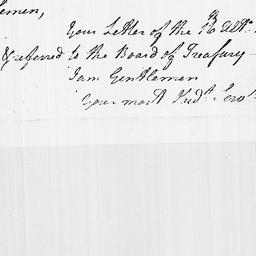 lemen,
Your Letter of the 16th
& referred to the Board of Treasury
I am Gentlemen
Your most